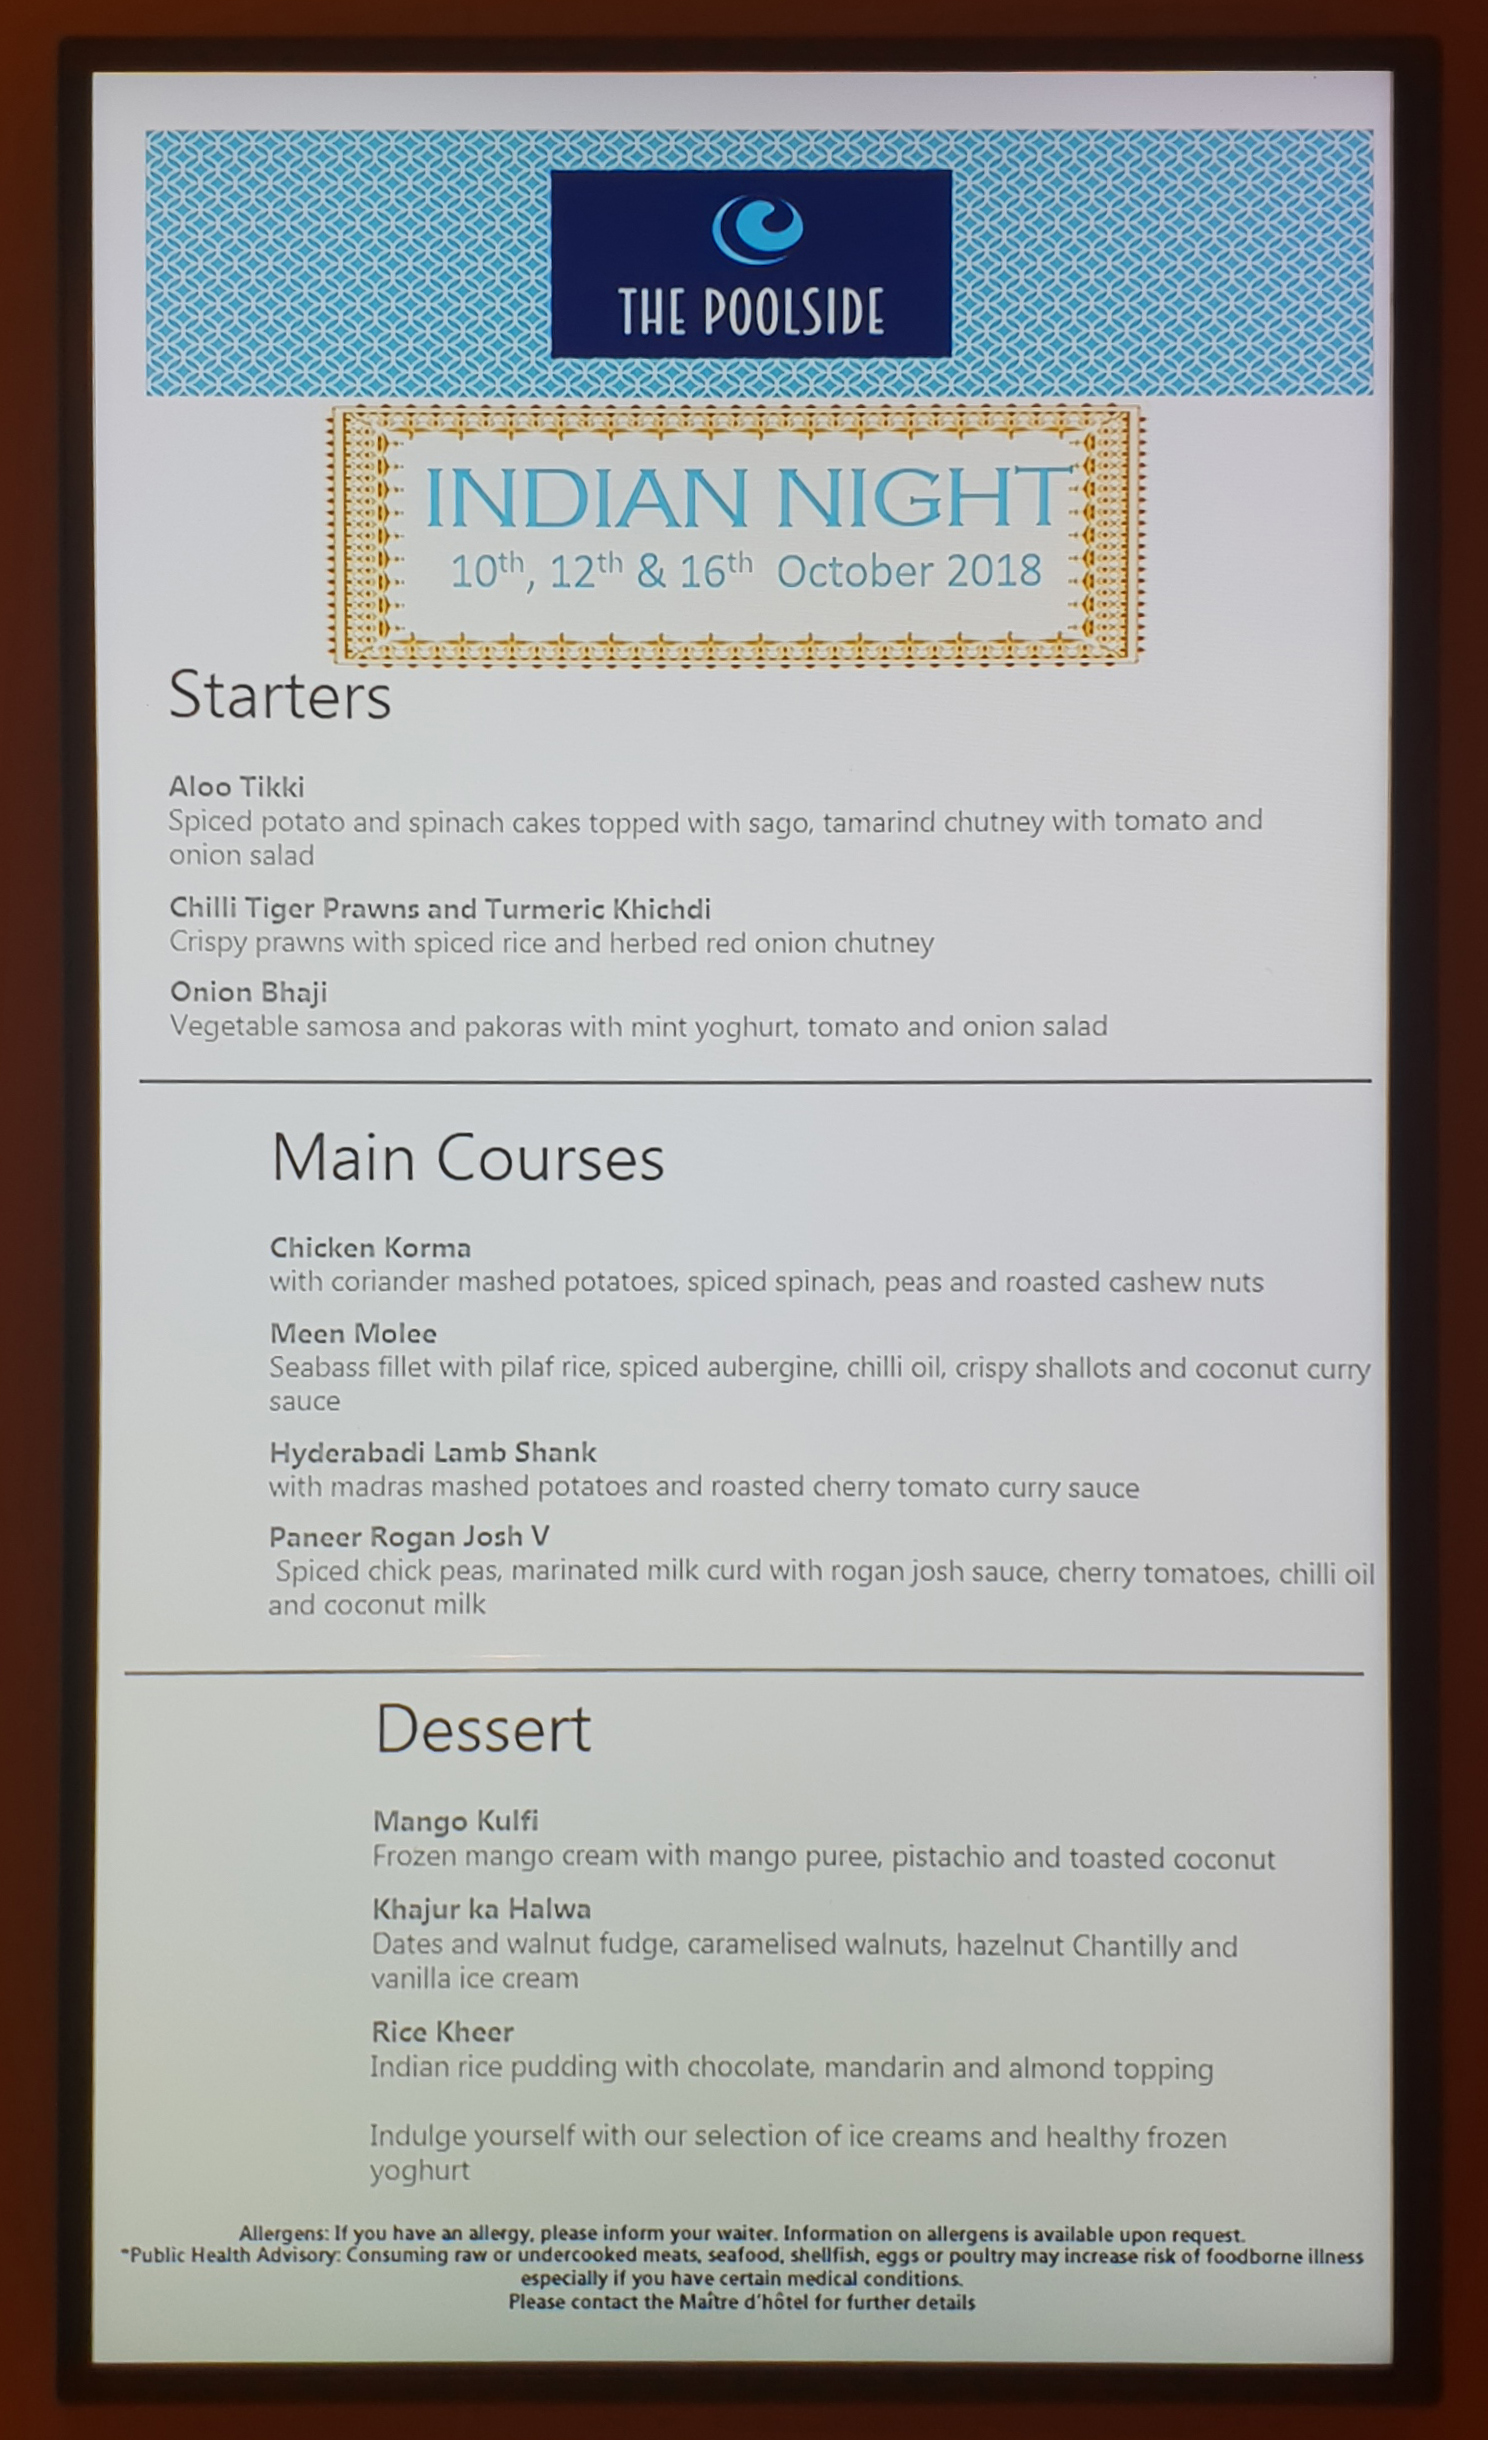 THE POOLSIDE
INDIAN NIGHT
10th, 12th & 16th October 2018
Starters
Aloo Tikki
Spiced potato and spinach cakes topped with sago, tamarind chutney with tomato and
onion salad
Chilli Tiger Prawns and Turmeric Khichdi
Crispy prawns with spiced rice and herbed red onion chutney
Onion Bhaji
Vegetable samosa and pakoras with mint yoghurt, tomato and onion salad
Main Courses
Chicken Korma
with coriander mashed potatoes, spiced spinach, peas and roasted cashew nuts
Meen Molee
Seabass fillet with pilaf rice, spiced aubergine, chilli oil, crispy shallots and coconut curry
sauce
Hyderabadi Lamb Shank
with madras mashed potatoes and roasted cherry tomato curry sauce
Paneer Rogan Josh V
Spiced chick peas, marinated milk curd with rogan josh sauce, cherry tomatoes, chilli oil
and coconut milk
Dessert
Mango Kulfi
Frozen mango cream with mango puree, pistachio and toasted coconut
Khajur ka Halwa
Dates and walnut fudge, caramelised walnuts, hazelnut Chantilly and
vanilla ice cream
Rice Kheer
Indian rice pudding with chocolate, mandarin and almond topping
Indulge yourself with our selection of ice creams and healthy frozen
yoghurt
Allergens: If you have an allergy, please inform your waiter. Information on allergens is available upon request.
*Public Health Advisory: Consuming raw or undercooked meats, seafood, shellfish, eggs or poultry may increase risk of foodborne illness
especially if you have certain medical conditions.
Please contact the Maître d'hôtel for further details